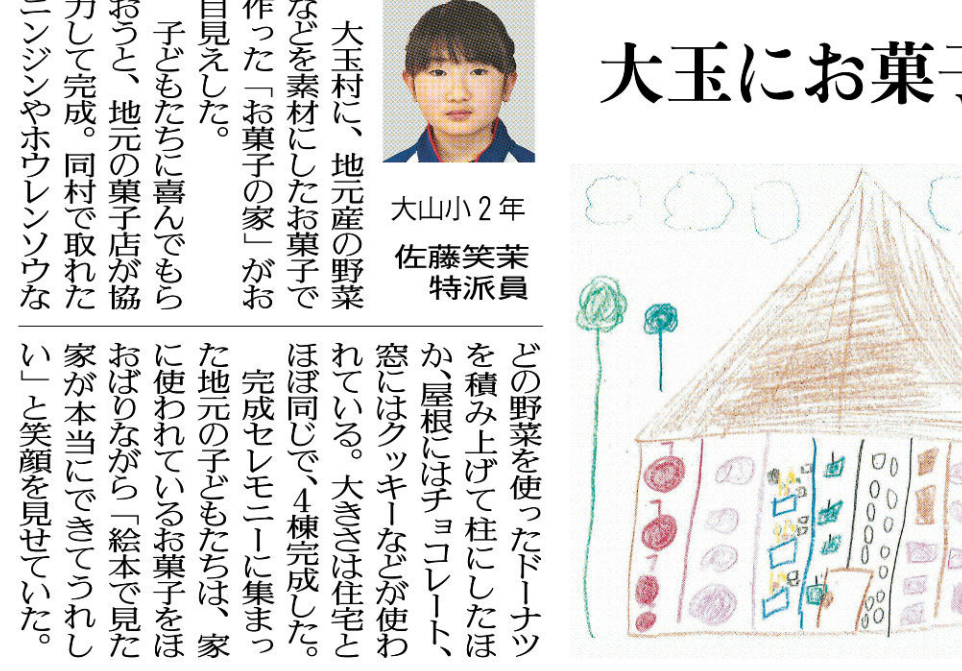 大玉にお菓子
大山小2年
佐藤笑茉
特派員
大玉村に、地元産の野菜
などを素材にしたお菓子で
作った「お菓子の家」がお
目見えした。
子どもたちに喜んでもら
おうと、地元の菓子店が協
力して完成。同村で取れた
ニンジンやホウレンソウな
どの野菜を使ったドーナツ
を積み上げて柱にしたほ
か、屋根にはチョコレート、
窓にはクッキーなどが使わ
れている。大きさは住宅と
ほぼ同じで、4棟完成した。
完成セレモニーに集まっ
た地元の子どもたちは、家
に使われているお菓子をほ
おばりながら「絵本で見た
家が本当にできてうれし
い」と笑顔を見せていた。